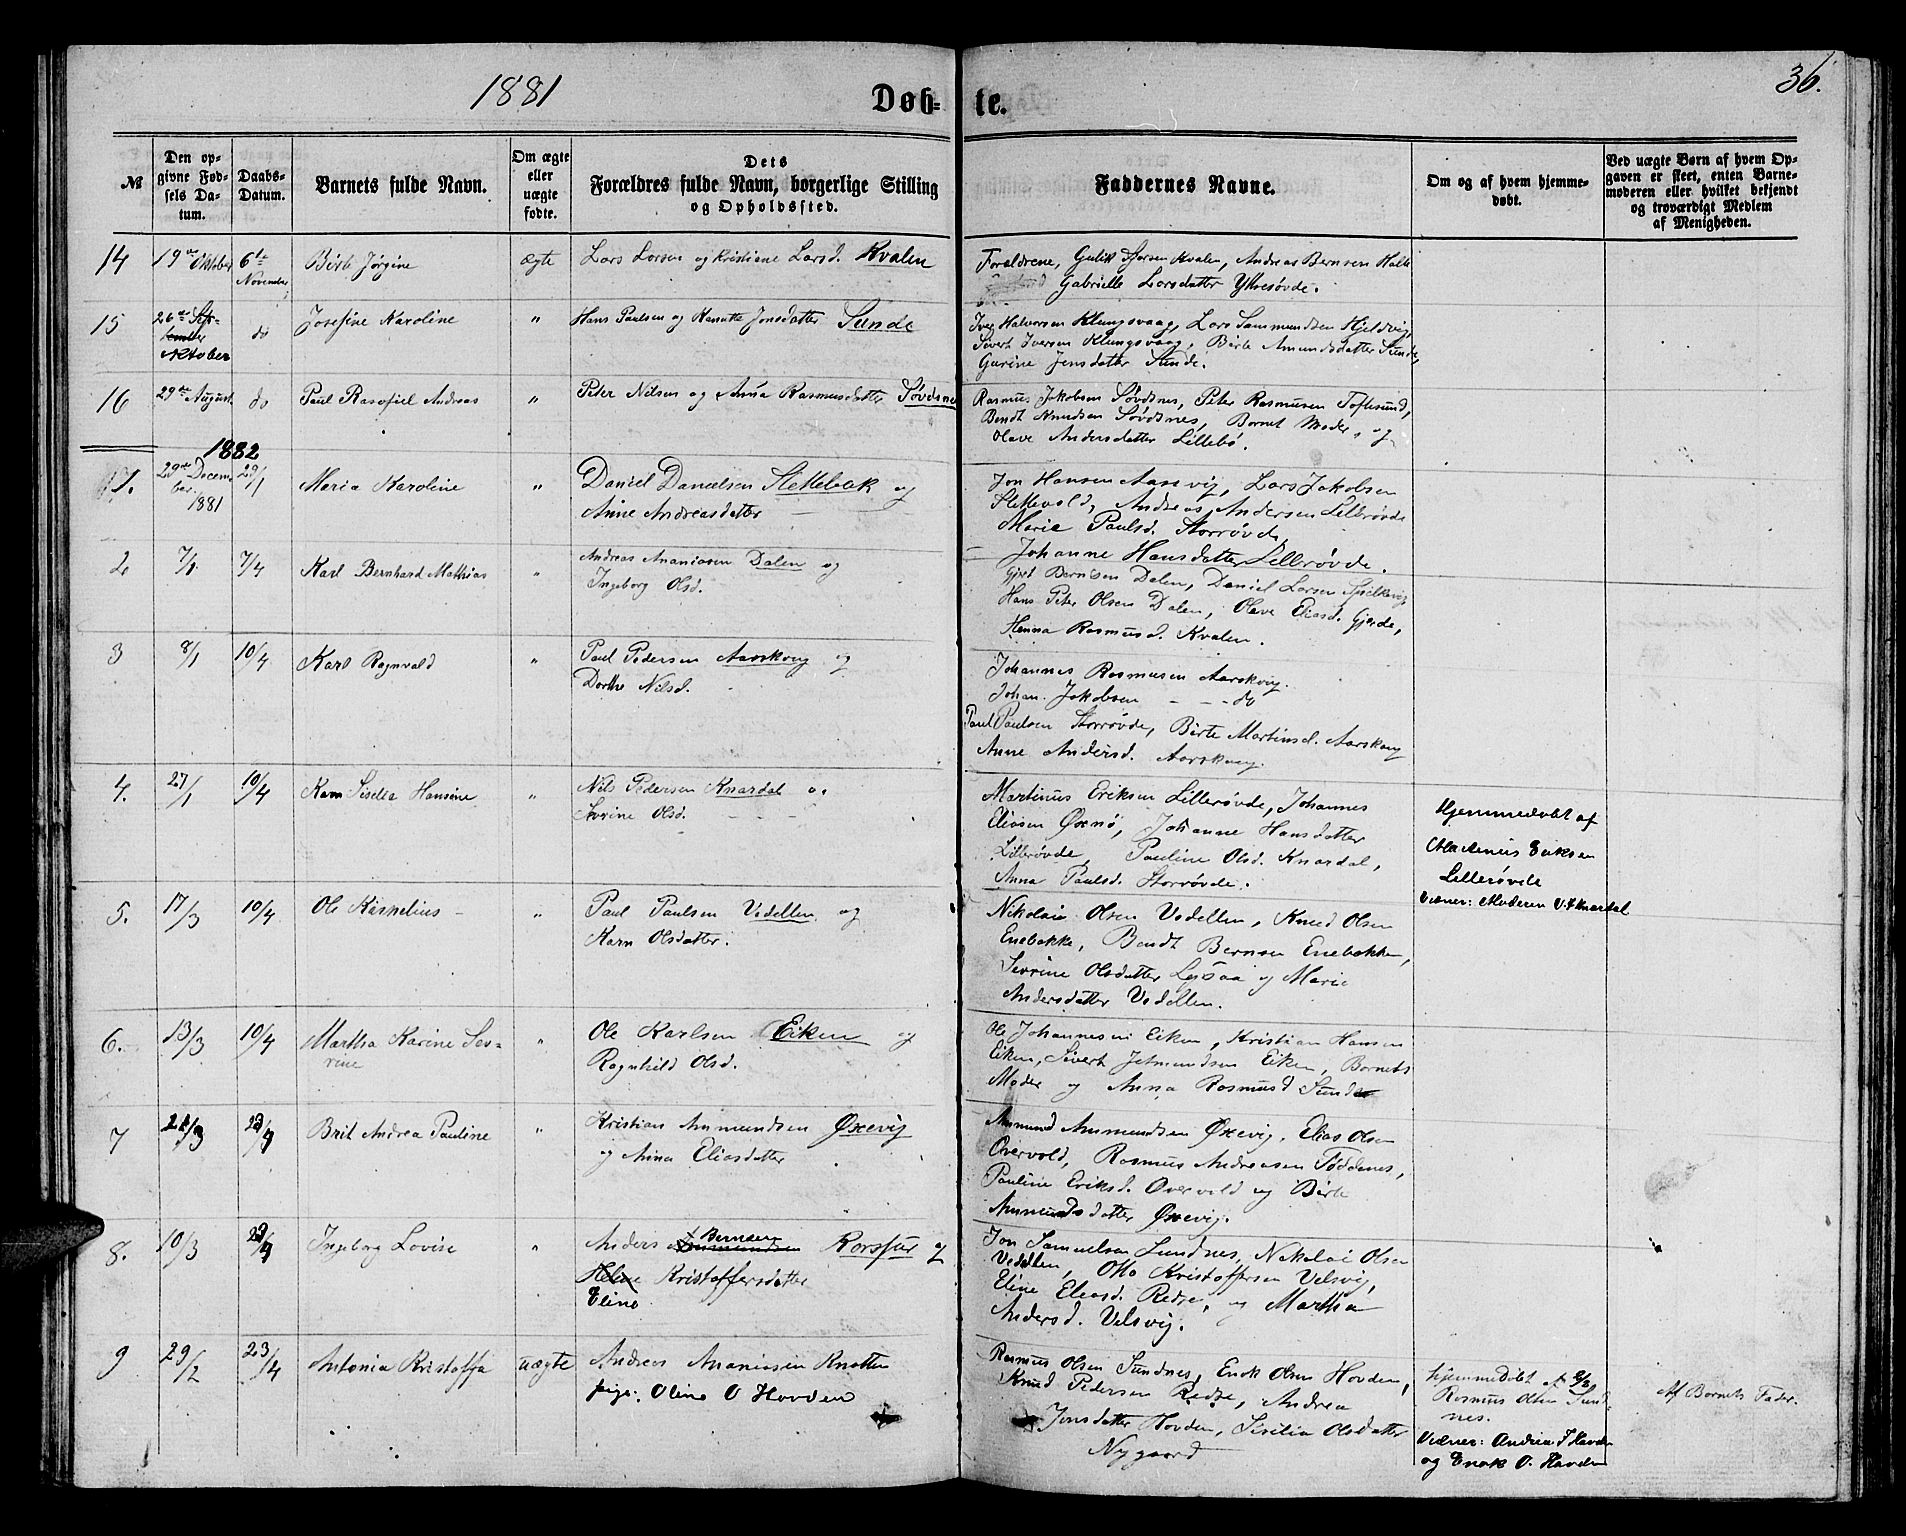 1881
Døb-
te.
36.
№
Den op-
givne Fød-
sels Da-
tum.
Daabs-
Datum.
Barnets fulde Navn.
Om ægte
eller
uægte
fødte.
Dets
Forældres fulde Navn, borgerlige Stilling
og Opholdssted.
Faddernes Navne.
Om og af hvem hjemme-
døbt.
Ved uægte Børn af hvem Op-
gaven er skeet, enten Barne-
moderen eller hvilket bekjendt
og troværdigt Medlem
af Menigheden.
14
19de Oktober
6te
November
Birte Jørgine
ægte
Lars Larsen og Kristiane Larsd. Kvalen
Forældrene, Gulik Kvalen, Andreas Bernsen
Gabrielle Larsdatter
15
26de
Oktober
do
Josefine Karoline
"
Hans Paulsen og Jonsdatter Sunde
Iver Halvorsen Klungsvaag, Lars Hjeldvig,
Sivert Iversen Klungsvaag, Birte Amundsdatter Sunde,
Gurine Jensdatter Sunde.
16
29de August
do
Paul Rasofiel Andreas
"
Peter Nilsen og Anna Rasmusdatter Søvdsnes
Rasmus Jakobsen Søvdsnes, Peter Rasmusen Toftesund,
Bendt Knudsen Søvdsnes, Barnets Moder, og
Olave Andersdatter Lillebø.
1882
1.
29de Decem-
ber.
1881
29/1
Maria Karoline
"
Daniel Danielsen Slettebak og
Anne Andreasdatter
Jon Hansen Aarsvig, Lars Jakobsen
Slettevold, Andreas Andersen Lillerøvde
Marie Paulsd. Storrøvde,
Johanne Hansdatter Lillerøvde.
2
7/1
7/4
Karl Bernhard Mathias
"
Andreas Ananiasen Dalen og
Ingeborg Olsd.
Gjert Berntsen Dalen, Daniel Larsen Spilkevig,
Hans Peter Olsen Dalen, Olave Eliasd. Gjerde,
Hanna Rasmusd. Kvalen.
3
8/1
10/4
Karl Ragnvald
"
Paul Pedersen Aarskoug og
Dorthe Nilsd.
Johannes Rasmusen Aarskoug.
Johan. Jakobsen - - - do
Paul Paulsen Storrøvde, Birte Martinsd. Aarskoug
Anne Andersd. Aarskoug.
4.
27/1
10/4
Karn Siselia Hansine
"
Nils Pedersen Knardal og
Sevrine Olsd.
Martinus Eriksen Lillerøvde, Johannes
Eliasen Øxnø, Johanne Hansdatter
Lillerøvde, Pauline Olsd. Knardal,
Anna Paulsd. Storrøvde.
Hjemmedøbt af
Martinus Eriksen
Lillerøvde
Vidner: Moderen Knardal
5.
17/3
10/4
Ole Kornelius
"
Paul Paulsen Vedellen og
Karn Olsdatter.
Nikolai Olsen Vedellen, Knud Olsen
Enebakke, Bendt Bernsen Enebakken,
Sevrine Olsdatter og Marie
Andersdatter Vedellen.
6.
13/3
10/4
Martha Karine Sev-
rine
"
Ole Karlsen Eiken og
Ragnhild Olsd.
Ole Johannesen Eiken, Kristian Hansen
Eiken, Sivert Jetmundsen Eiken, Barnets
Moder og Anna Rasmusd Sunde
7
21/3
23/4
Brit Andrea Pauline
"
Kristian Ammundsen Øxevig
og Anna Eliasdatter
Ammund Ammundsen Øxevig, Elias Olsen
Overvold, Rasmus Andreasen
Pauline Eriksd. Overvold og Birte
Ammundsdatter Øxevig.
8.
10/3
23/4
Ingeborg Lovise
"
Anders Bernsen Ammundsen Korsfur og
Helene Kristoffersdatter
Eline
Jon Samuelsen Sundnes, Nikolai Olsen
Vedellen, Otto Kristoffersen Velsvig,
Eline Eliasd. Redse, og Martha
Andersd. Velsvig.
9
29/2
23/4
Antonia Kristoffa
uægte
Andreas Ananiasen Knotten
pige: Oline O Hovden
Rasmus Olsen Sundnes, Enok Olsen Hovden,
Knud Pedersen Redse, Andrea
Jonsdatter Hovden, Sisilia Olsdatter
Nygaard
Hjemmedøbt af
Rasmus Olsen Sund-
nes.
Vidner: Andrea J Hovden
og Enok O. Hovden
Af Barnets Fader.